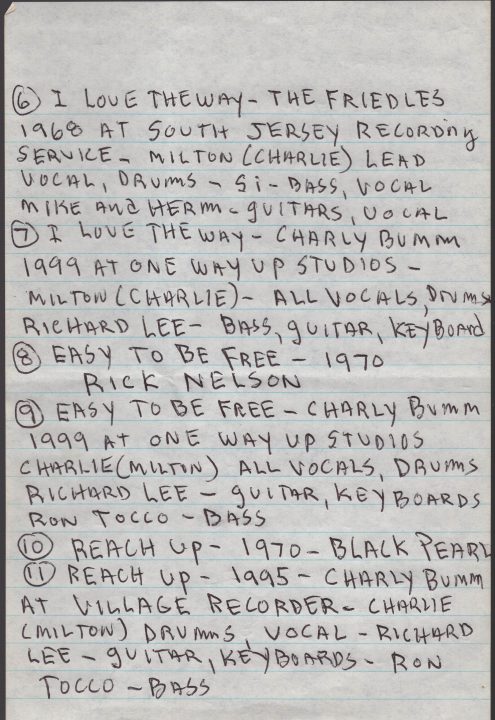 ⑥ I LOVE THE WAY - THE FRIEDLES
1968 AT SOUTH JERSEY RECORDING
SERVICE - MILTON (CHARLIE) LEAD
VOCAL, DRUMS - Si - BASS, VOCAL
MIKE AND HERM - GUITARS, VOCAL
⑦ I LOVE THE WAY - CHARLY BUMM
1999 AT ONE WAY UP STUDIOS -
MILTON (CHARLIE) - ALL VOCALS, DRUMS
RICHARD LEE - BASS, GUITAR, KEYBOARD
⑧ EASY TO BE FREE - 1970
RICK NELSON
⑨ EASY TO BE FREE - CHARLY BUMM
1999 AT ONE WAY UP STUDIOS
CHARLIE (MILTON) ALL VOCALS, DRUMS
RICHARD LEE - GUITAR, KEYBOARDS
RON TOCCO - BASS
⑩ REACH UP - 1970 - BLACK PEARL
⑪ REACH UP - 1995 - CHARLY BUMM
AT VILLAGE RECORDER - CHARLIE
(MILTON) DRUMS, VOCAL - RICHARD
LEE - GUITAR, KEYBOARDS - RON
TOCCO - BASS